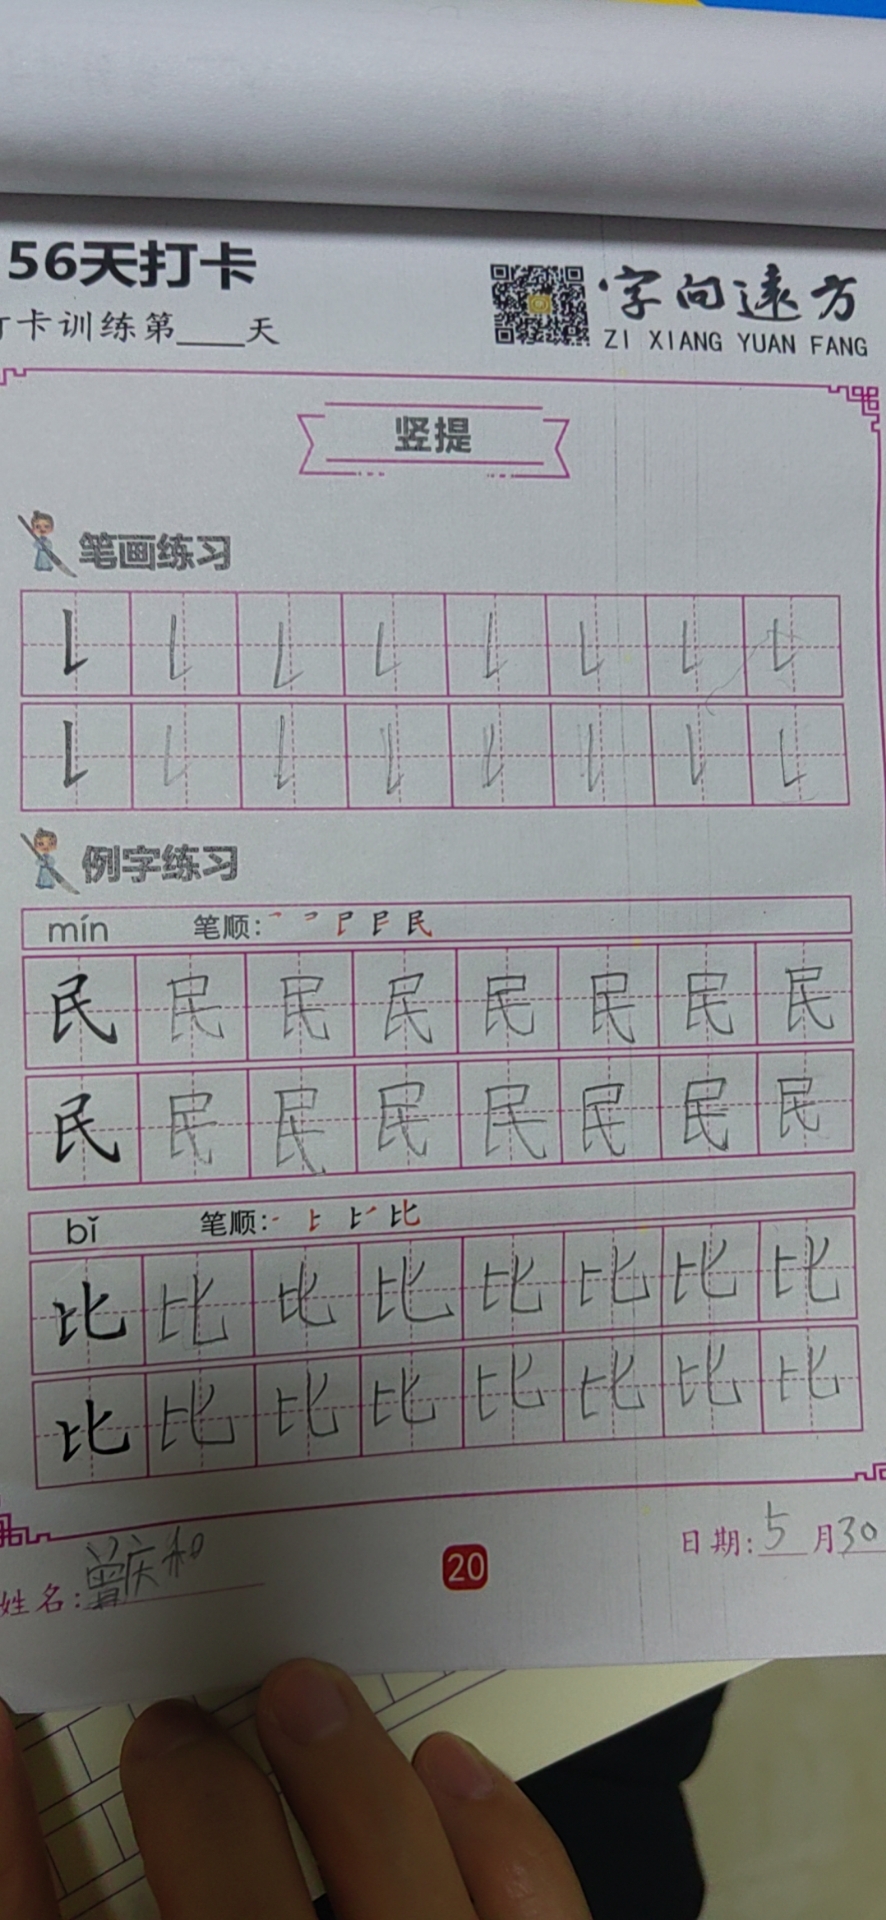 56天打卡
打卡训练第____天
字向远方
ZI XIANG YUAN FANG
竖提
笔画练习
例字练习
mín 笔顺:
民 民 民 民 民 民 民 民
民 民 民 民 民 民 民 民
bǐ 笔顺:
比 比 比 比 比 比 比 比
比 比 比 比 比 比 比 比
姓名:曾庆和
20
日期:5月30